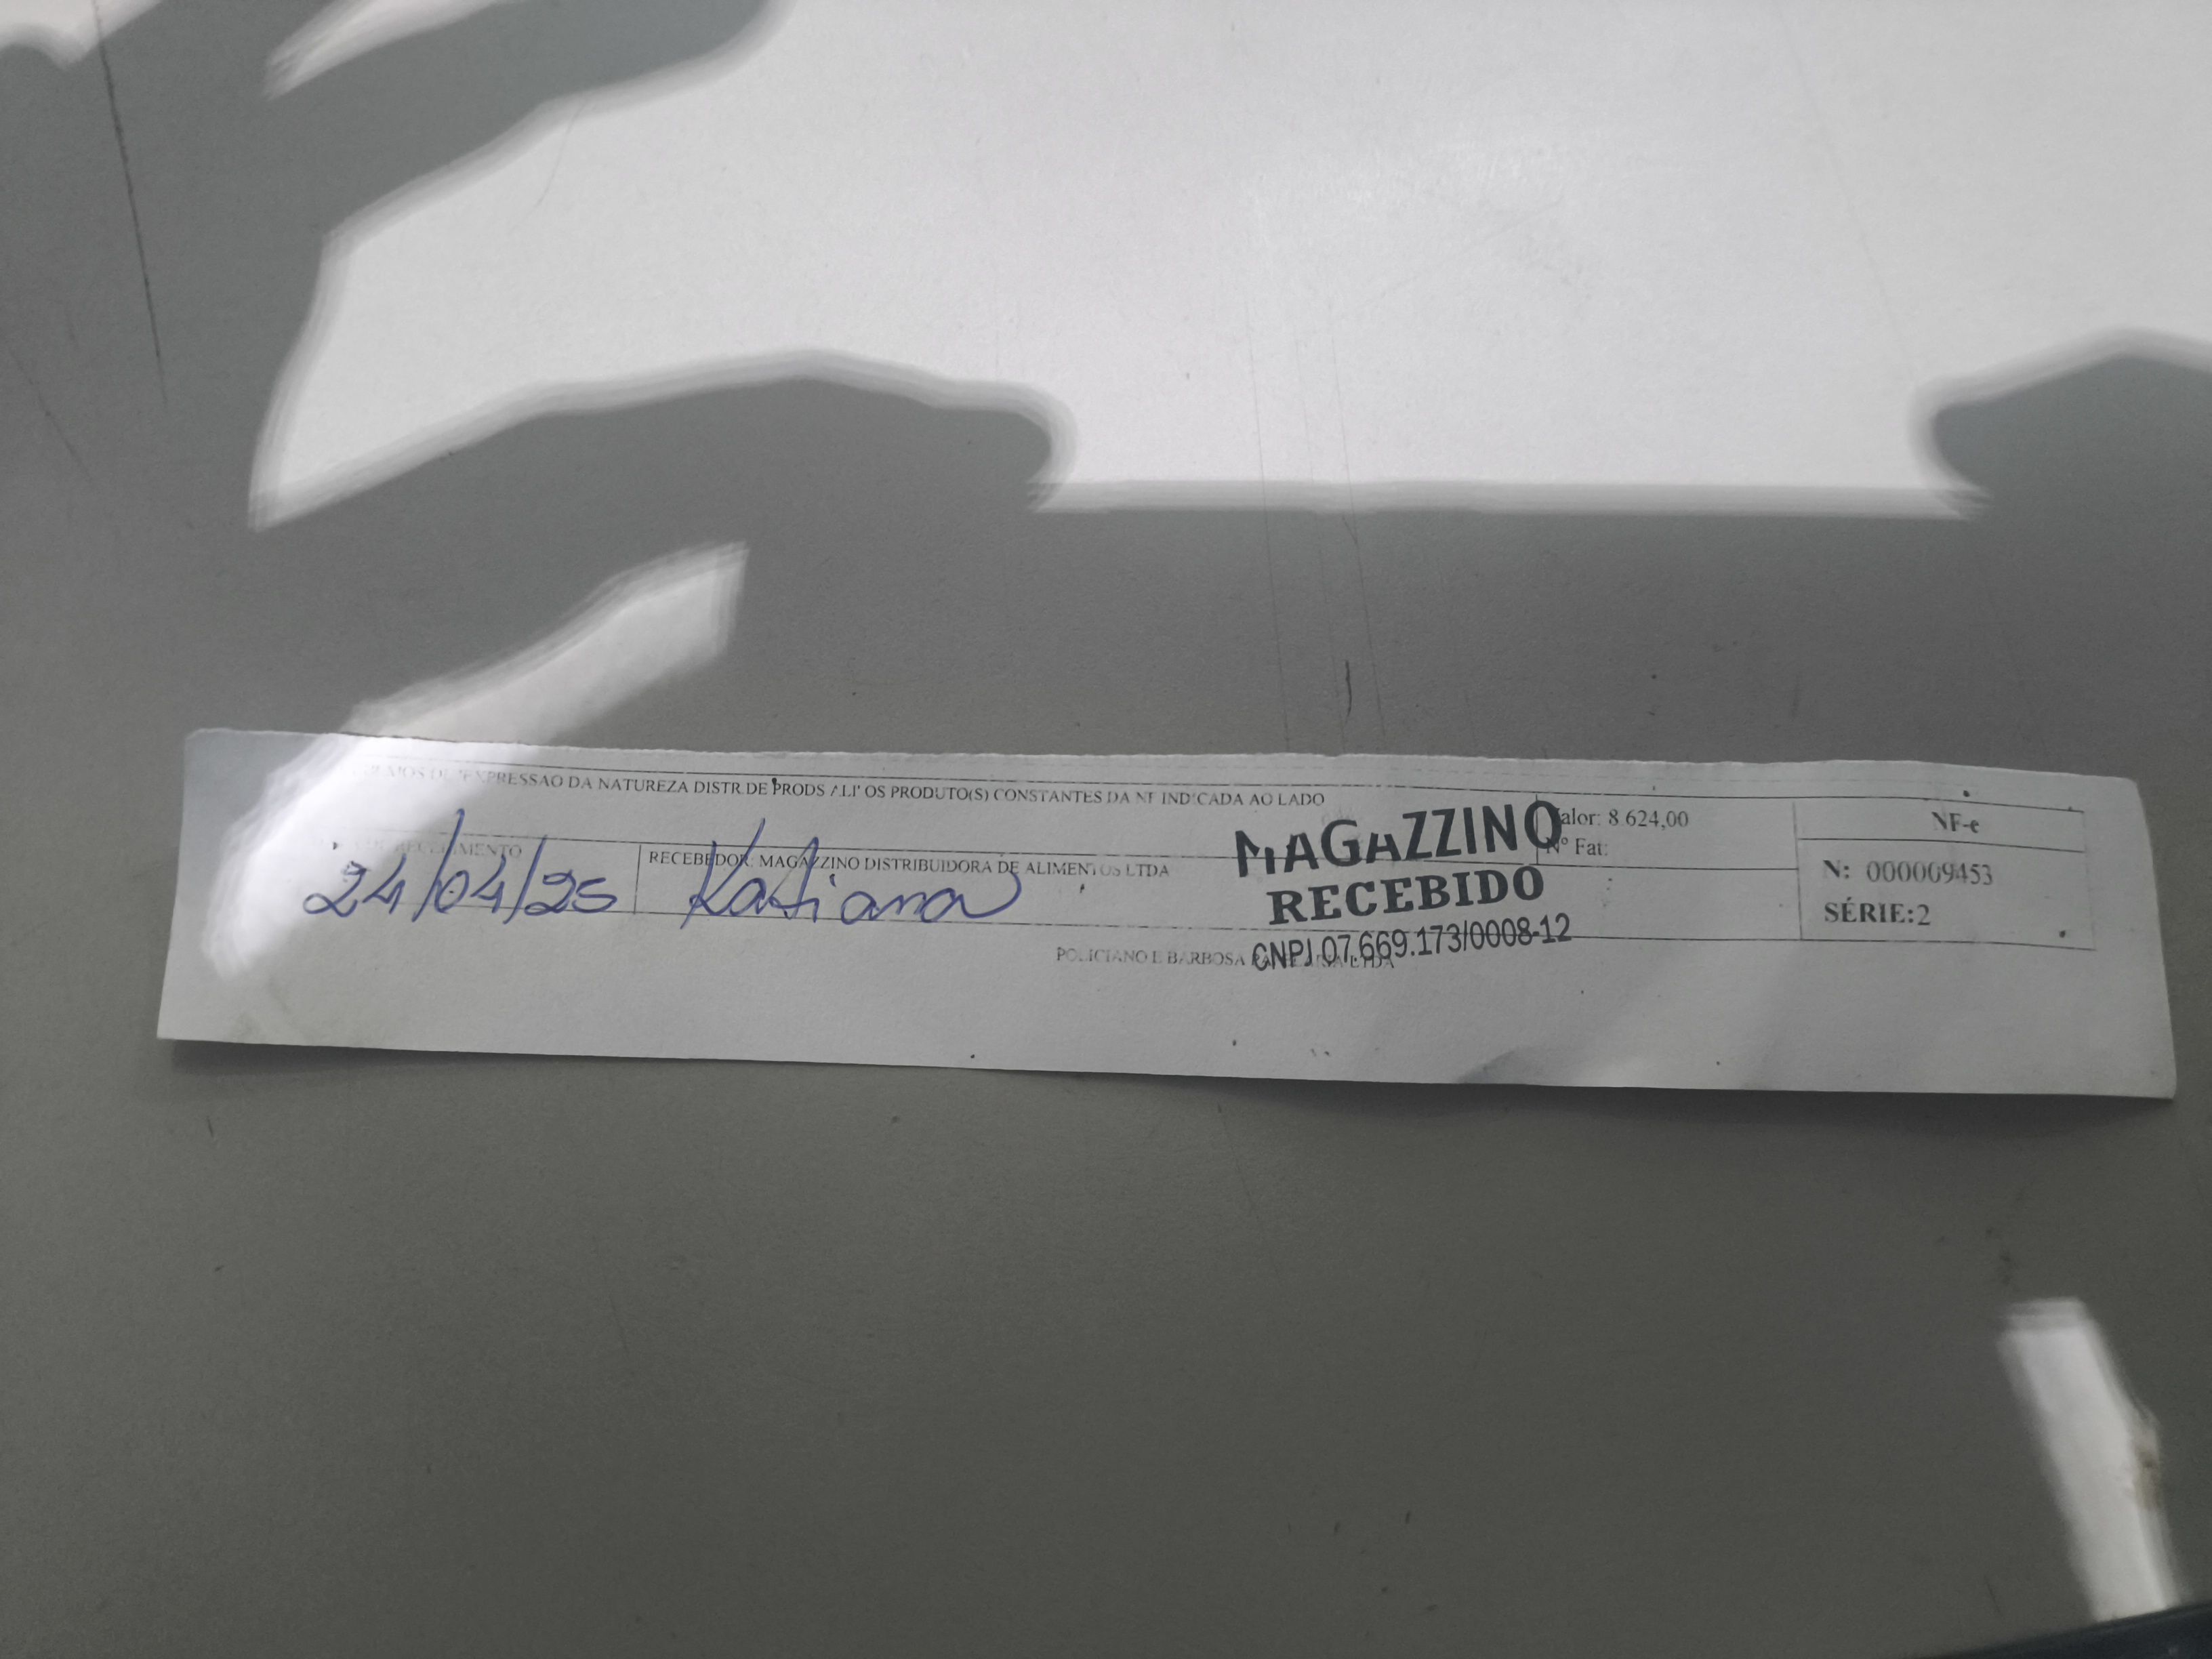 EXPRESSAO DA NATUREZA DISTR.DE PRODS ALI' OS PRODUTO(S) CONSTANTES DA NF INDICADA AO LADO
24/04/25
RECEBEDOR: MAGAZZINO DISTRIBUIDORA DE ALIMENTOS LTDA
Katiana
MAGAZZINO
RECEBIDO
CNPJ 07.669.173/0008-12
Valor: 8.624,00
Nº Fat:
NF-e
N: 000009453
SÉRIE:2
BARBOSA LTDA